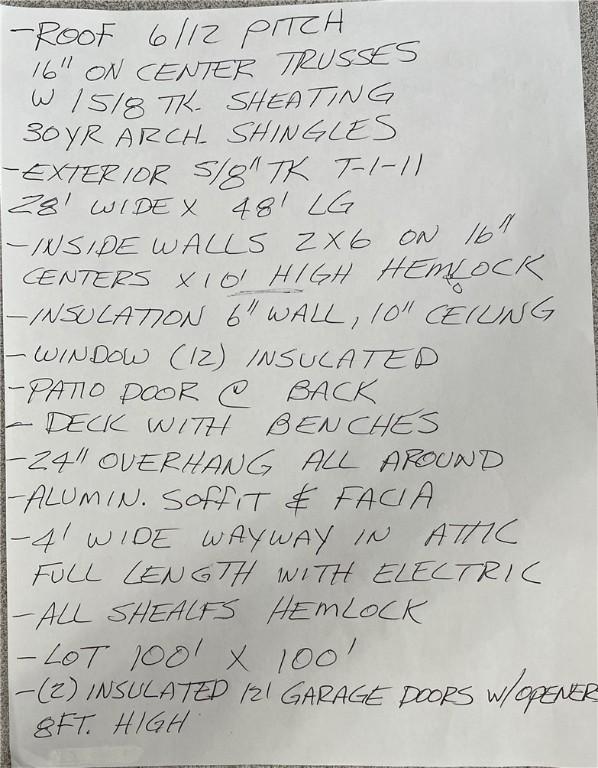 - ROOF 6/12 PITCH
16" ON CENTER TRUSSES
W / 5/8 TK. SHEATING
30 YR ARCH. SHINGLES
- EXTERIOR 5/8" TK T-1-11
28' WIDE X 48' LG
- INSIDE WALLS 2X6 ON 16"
CENTERS X 10' HIGH HEMLOCK
- INSULATION 6" WALL, 10" CEILING
- WINDOW (12) INSULATED
- PATIO DOOR @ BACK
- DECK WITH BENCHES
- 24" OVERHANG ALL AROUND
- ALUMIN. SOFFIT & FACIA
- 4' WIDE WAYWAY IN ATTIC
FULL LENGTH WITH ELECTRIC
- ALL SHEALFS HEMLOCK
- LOT 100' X 100'
- (2) INSULATED 12' GARAGE DOORS W/OPENERS
8FT. HIGH